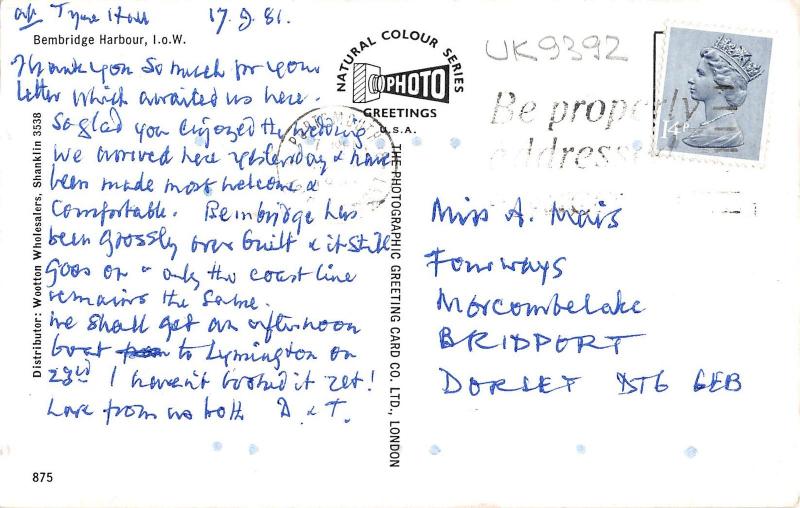 at Tyne Hall 17.9.81.
Bembridge Harbour, I.o.W.
Thank you so much for your
letter which awaited us here.
So glad you enjoyed the wedding
we arrived here yesterday & have
been made most welcome &
comfortable. Bembridge has
been grossly over built & it still
goes on - only the coast line
remains the same.
we shall get an afternoon
boat to Lymington on
23rd I haven't booked it yet!
Love from us both D & T.
875
Distributor: Wootton Wholesalers, Shanklin 3538
NATURAL COLOUR SERIES
PHOTO
GREETINGS
U.S.A.
THE PHOTOGRAPHIC GREETING CARD CO. LTD., LONDON
UK9392
Be properly
addressed
14P
Miss A. Mais
Fourways
Morcombelake
BRIDPORT
DORSET DT6 6EB